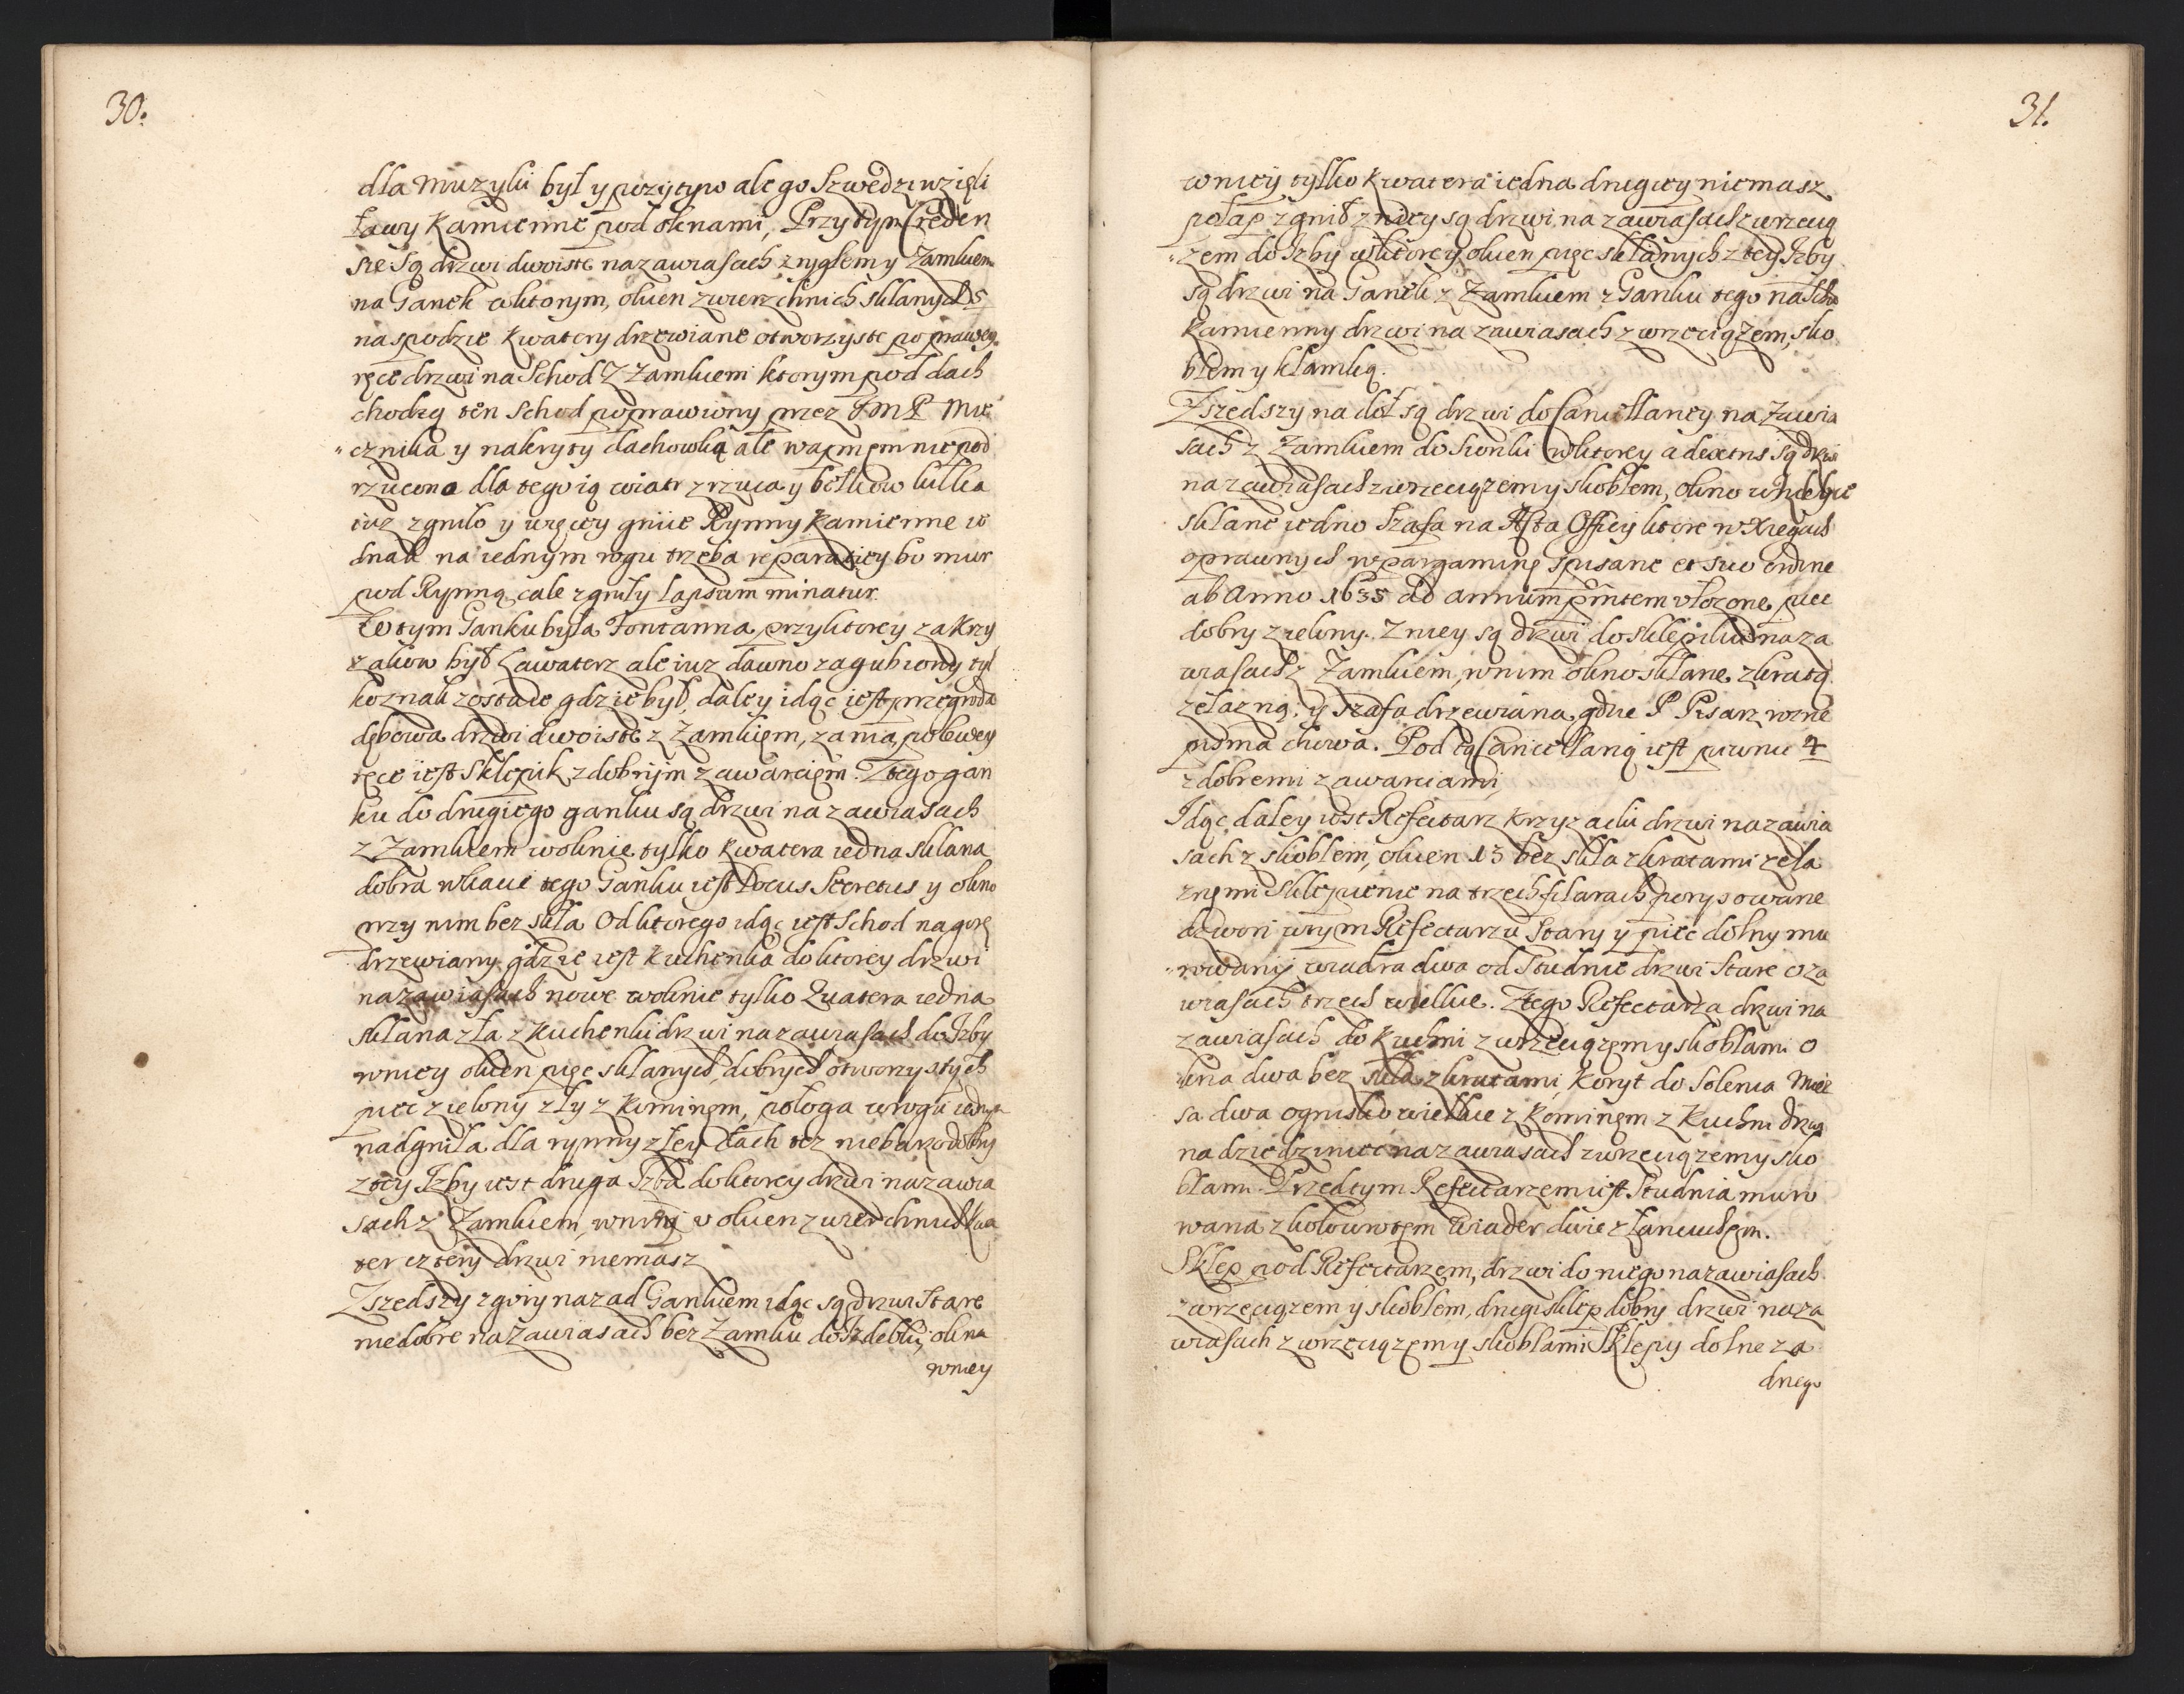 30.
dla Muzyki był y pozytyw ale go Szwedzi wzięli
Ławy Kamienne pod oknami, Przy tym Creden
sie są drzwi dwoiste na zawiasach z ryglem y Zamkiem
na Ganek w ktorym, okien zwierzchnich sklanych 5
na spodzie Kwatery drzewiane otworzyste po prawey
ręce drzwi na Schod z Zamkiem ktorym pod dach
chodzą ten Schod poprawiony przez JMP Mie
cznika y nakryty dachowką ale wapnęm nie pod
rzucona dla tego ią wiatr zrzuca y belkow kilka
iuz zgniło y więcey gniie Rynny Kamienne ie
dnak na iednym rogu trzeba reparaticy bo mur
pod Rynną cale zgniły lapsum minatur.
W tym Ganku była Fontanna przy ktorey za Krzy
zakow był Lawaterz ale iuz dawno zagubiony tyl
ko znak zostaie gdzie był, daley idąc iest przegroda
dębowa drzwi dwoiste z Zamkięm, za nią, po lewey
ręce iest Sklepik z dobrym zawarcięm. Z tego gan
ku do drugiego ganku są drzwi na zawiasach
z Zamkiem w oknie tylko Kwatera iedna sklana
dobra w kącie tego Ganku iest Locus Secretus y okno
przy nim bez skła Od ktorego idąc iest Schod na gorę
drzewiany gdzie iest Kuchenka do ktorey drzwi
na zawiasach nowe w oknie tylko Quatera iedna
sklana zła z Kuchenki drzwi na zawiasach do Izby
w niey okien pięc sklanych, dobrych otworzystych
piec zielony zły z Kominęm, pologa w rogu iednym
nadgniła dla rynny złey dach tez niebarzo dobry
z tey Izby iest druga Izba do ktorey drzwi na zawia
sach z Zamkiem, w niey v okien zwierzchnich Kwa
ter cztery drzwi niemasz
Zszedszy z gory nazad Gankiem idąc są drzwi Stare
niedobre na Zawiasach bez Zamku do Izdebki, okna
w niey
31.
w niey tylko Kwatera iedna drugiey niemasz
połap zgnił z niey są drzwi, na zawiasach z wrzecią
zem do Izby w ktorey okien pięc sklanych z tey Izby
są drzwi na Ganek z Zamkiem z Ganku tego na Scho
Kamienny drzwi na zawiasach z wrzeciązem, sko
blem y klamką.
Zszedszy na doł są drzwi do Cancellariey na Zawia
sach z Zamkiem do Sionki w ktorey a dextris są drzwi
na zawiasach z wrzeciązem y skoblem, okno w niey
sklane iedno Szafa na Acta Officij ktore w Xięgach
oprawnych w pargaminę spisane et suo ordine
ab Anno 1635 ad annum pntem vłozone, piec
dobry zielony. Z niey są drzwi do sklepiku na za
wiasach z Zamkiem, w nim okno sklane z kratą
zelazną, y Szafa drzewiana, gdzie P Pisarz rozne
pisma chowa. Pod tą Cancellarią iest piwnic 4
z dobremi zawarciami,
Idąc daley iest Refectarz Krzyzacki drzwi na zawia
sach z skoblem, okien 13 bez skła z kratami zela
znęmi Sklepienie na trzech filarach porysowane
w tym Refectarzu Stary y piec dolny mu
rowany wiadra dwa od Studnie drzwi Stare o za
wiasach trzech wielkie. Z tego Refectarza drzwi na
zawiasach do Kuchni z wrzeciązęm y skoblami o
kna dwa bez skła z kratami, Koryt do Solenia Mię
sa dwa ognisko wielkie z Kominęm z Kuchni drzwi
na dziedziniec na zawiasach z wrzeciązem y sko
blami. Przed tym Refectarzem iest Studnia muro
wana z kołowrotęm Wiader dwie z Łancuchęm.
Sklep pod Refectarzem, drzwi do niego na zawiasach
z wrzeciązem y skoblem, drugi sklep dobry drzwi na za
wiasach z wrzeciązęm y skoblami Sklepy dolne za
dnego